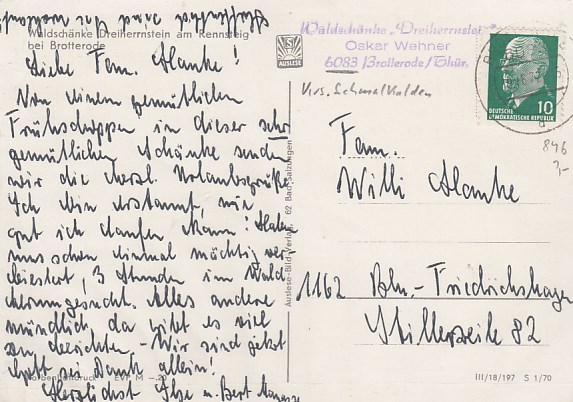 Hoffentlich sind Sie noch
Waldschänke Dreiherrnstein am Rennsteig
bei Brotterode
Liebe Fam. Manke!
Von einem gemütlichen
Frühschoppen in dieser sehr
gemütlichen Schänke senden
wir die herzl. Urlaubsgrüße.
Ich bin erstaunt, wie
gut ich laufen kann! Haben
uns schon einmal mächtig ver-
biestert, 3 Stunden im Wald
herumgesucht. Alles andere
mündlich, da gibt es viel
zu berichten. Wir sind jetzt
Gott sei Dank allein!
Herzlichst Ilse u. Bert
AUSLESE
Auslese-Bild-Verlag, 62 Bad Salzungen
EVP M -.20
Waldschänke „Dreiherrnstein"
Oskar Wehner
6083 Brotterode/Thür.
Krs. Schmalkalden
10
DEUTSCHE
DEMOKRATISCHE REPUBLIK
846
Fam.
Willi Manke
1162 Bln.-Friedrichshagen
82
III/18/197 S 1/70